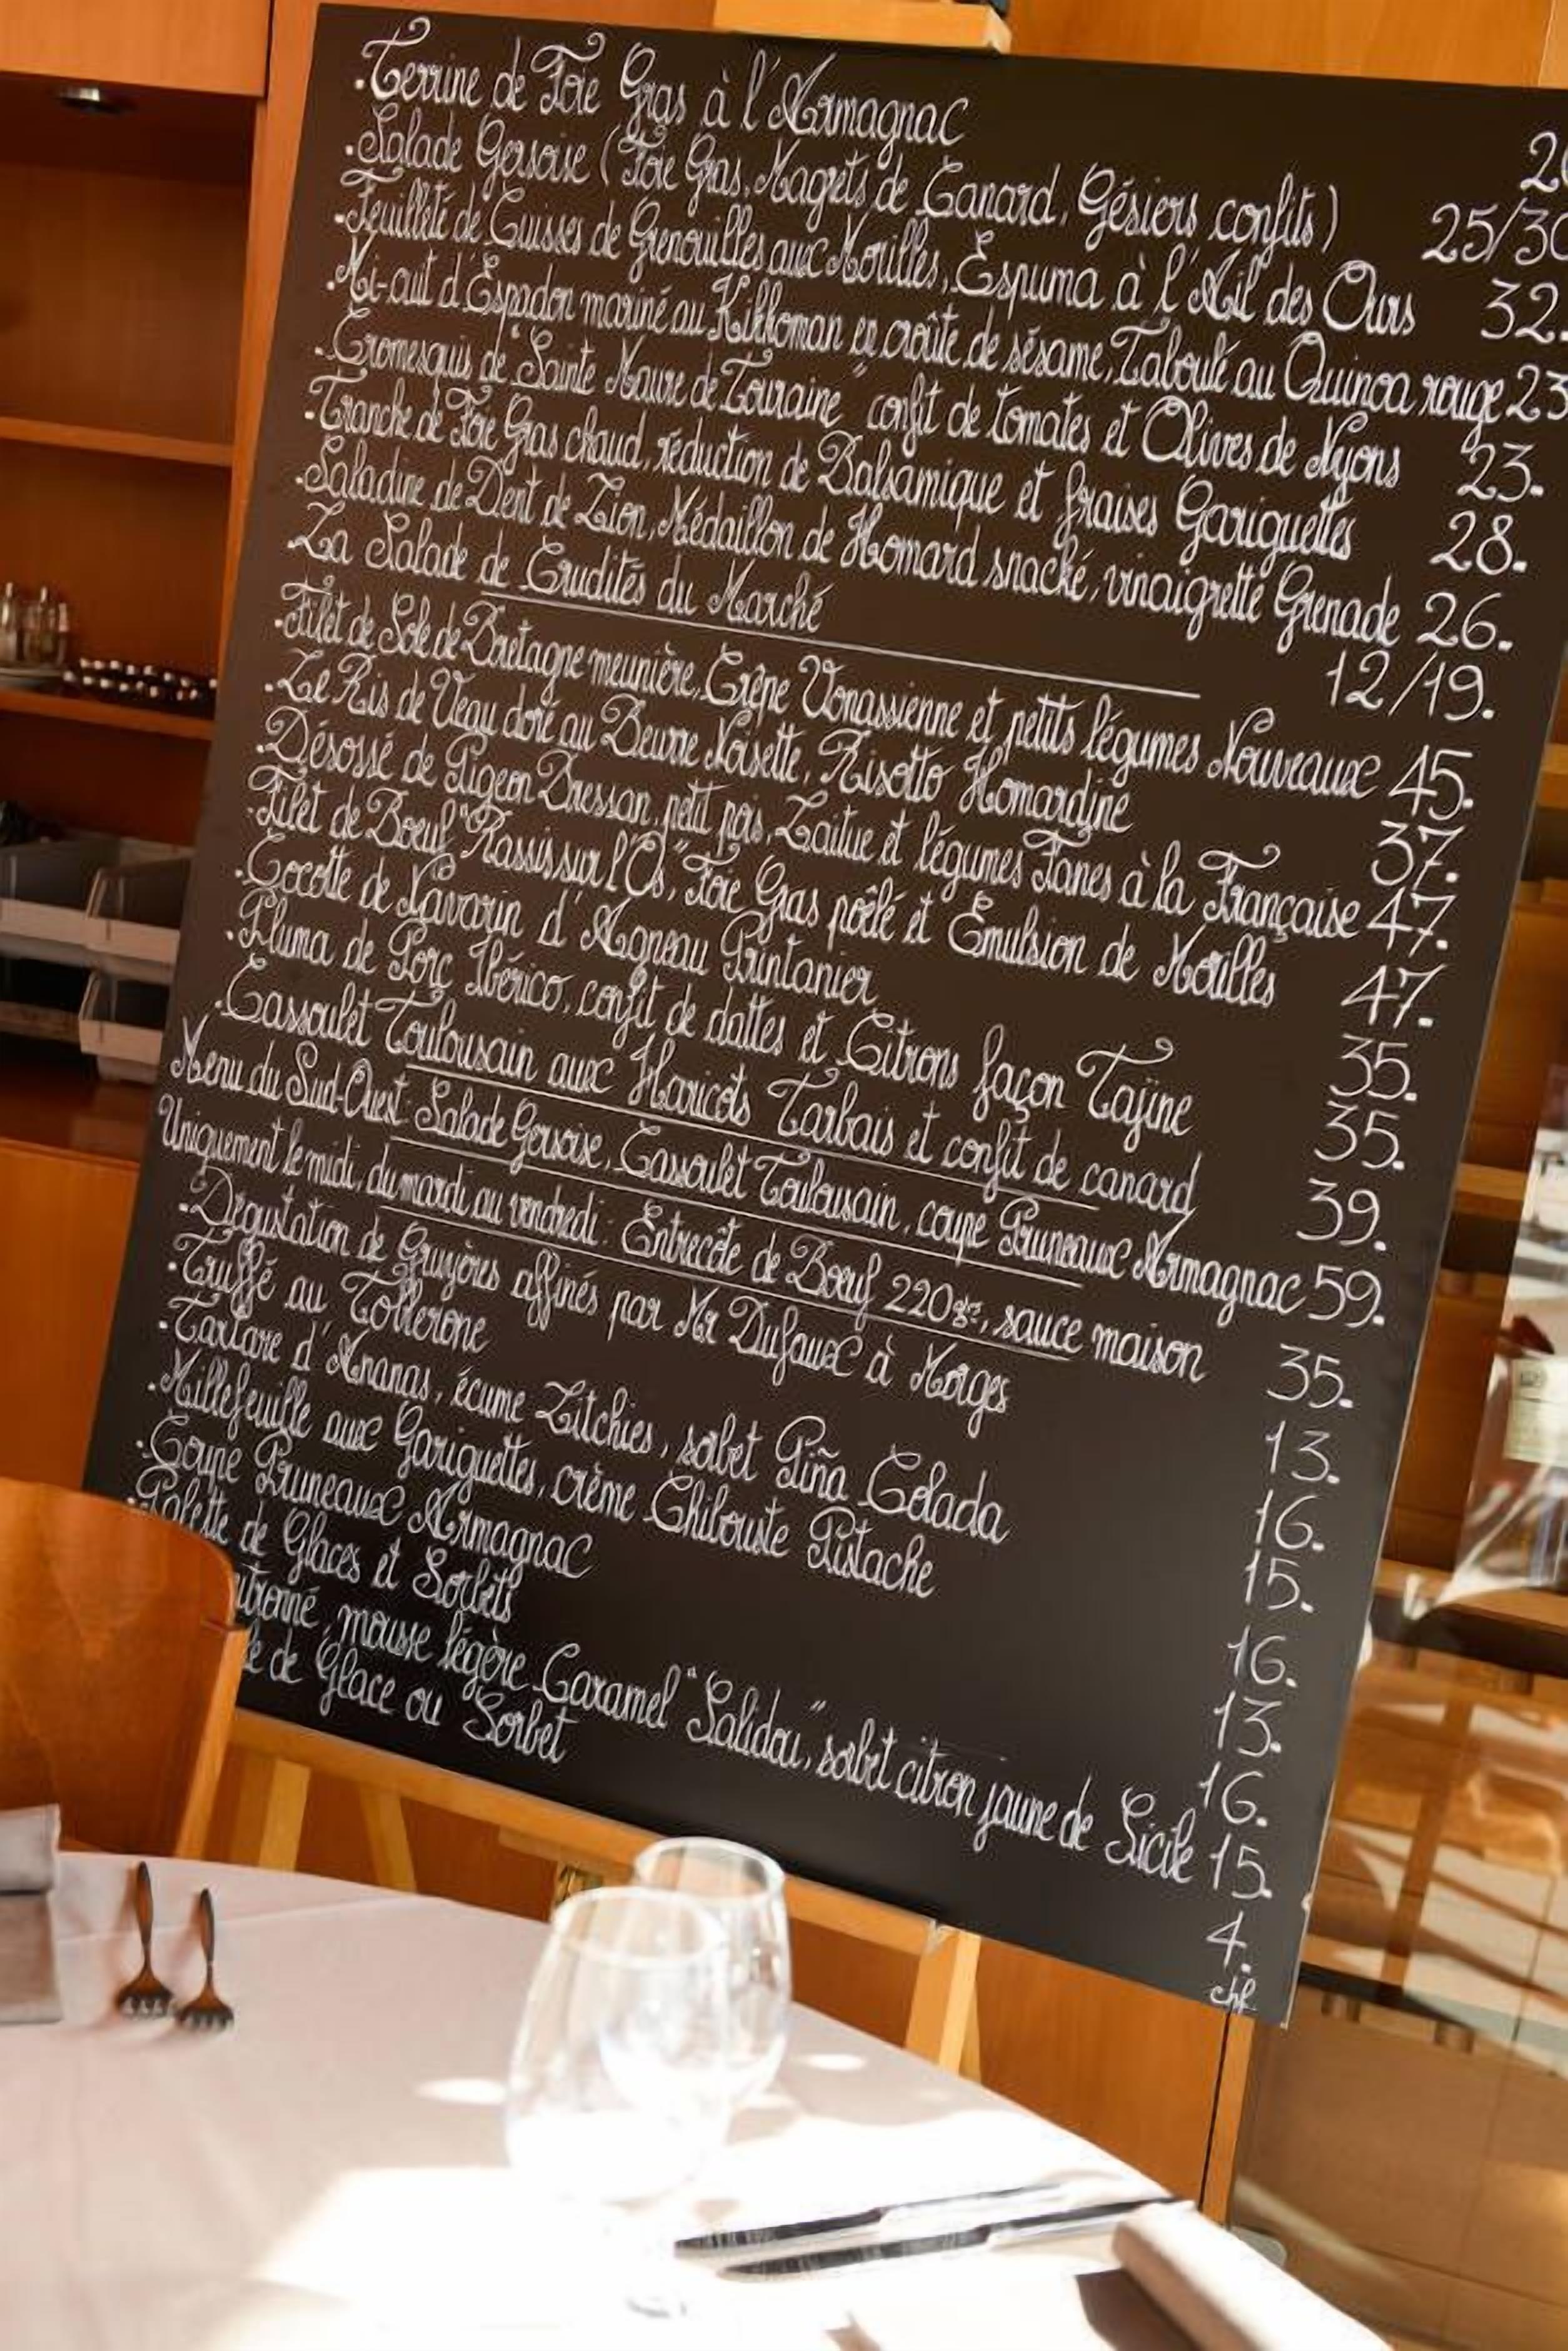 .Terrine de Foie Gras à l'Armagnac
.Salade Gersoise (Foie Gras, Magrets de Canard, Gésiers confits) 25/30
.Feuilleté de Cuisses de Grenouilles aux Morilles, Espuma à l'Ail des Ours 32.
.Mi-cuit d'Espadon mariné au Kikkoman en croûte de sésame, Taboulé au Quinoa rouge 23
.Cromesquis de "Sainte Maure de Touraine" confit de tomates et Olives de Nyons 23.
.Tranche de Foie Gras chaud, réduction de Balsamique et fraises Gariguettes 28.
.Saladine de Dent de Lion, Médaillon de Homard snacké, vinaigrette Grenade 26.
La Salade de Crudités du Marché 12/19.
.Filet de Sole de Bretagne meunière, Crêpe Vonassienne et petits légumes Nouveaux 45.
.Le Ris de Veau doré au Beurre Noisette, Risotto Homardine 37.
.Désossé de Pigeon Bressan, petit pois, Laitue et légumes Fanes à la Française 47.
.Filet de Boeuf "Rassis sur l'Os", Foie Gras poêlé et Emulsion de Morilles 47.
.Cocotte de Navarin d'Agneau Printanier 35.
.Pluma de Porc Ibérico, confit de dattes et Citrons façon Tajine 35.
.Cassoulet Toulousain aux Haricots Tarbais et confit de canard 39.
Menu du Sud-Ouest: Salade Gersoise, Cassoulet Toulousain, coupe Pruneaux Armagnac 59.
Uniquement le midi, du mardi au vendredi: Entrecôte de Boeuf 220gr, sauce maison 35.
.Dégustation de Gruyères affinés par Mr Dufaux à Morges 13.
.Truffé au Tobleronne 16.
.Tartare d'Ananas, écume Litchies, sorbet Piña Colada 15.
.Millefeuille aux Gariguettes, crème Chibouste Pistache 16.
.Coupe Pruneaux Armagnac 13.
.Palette de Glaces et Sorbets 16.
mousse légère Caramel "Salidou", sorbet citron jaune de Sicile 15.
de Glace ou Sorbet 4.
chf